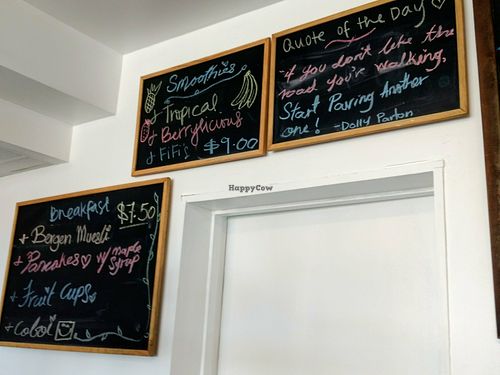 Smoothies
Tropical
Berrylicious
+ FiFi's $9.00
Quote of the Day
"if you don't like the
road you're walking,
Start Paving Another
one! - Dolly Parton
HappyCow
breakfast $7.50
+ Bergen Muesli
+ Pancakes w/ maple
syrup
+ Fruit Cups
+ Coboi